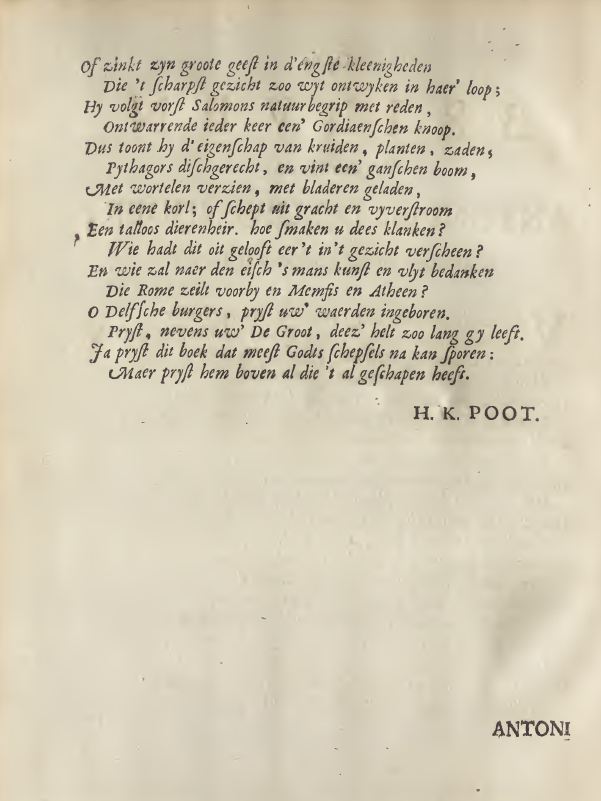 Of zinkt zyn groote geeſt in d'engſte kleenigheden
Die 't ſcharpſt gezicht zoo wyt ontwyken in haer' loop;
Hy volgt vorſt Salomons natuurbegrip met reden,
Ontwarrende ieder keer een' Gordiaenſchen knoop.
Dus toont hy d'eigenſchap van kruiden, planten, zaden,
Pythagors diſchgerecht, en vint een' ganſchen boom,
Met wortelen verzien, met bladeren geladen,
In eene korl; of ſchept uit gracht en vyverſtroom
Een talloos dierenheir. hoe ſmaken u dees klanken?
Wie hadt dit oit gelooft eer 't in 't gezicht verſcheen?
En wie zal naer den eiſch 's mans kunſt en vlyt bedanken
Die Rome zeilt voorby en Memfis en Atheen?
O Delfſche burgers, pryſt uw' waerden ingeboren.
Pryſt, nevens uw' De Groot, deez' helt zoo lang gy leeft.
Ja pryſt dit boek dat meeſt Godts ſchepſels na kan ſporen:
Maer pryſt hem boven al die 't al geſchapen heeft.
H. K. POOT.
ANTONI